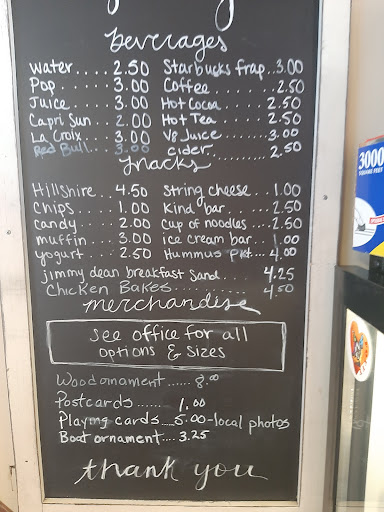 beverages
Water.... 2.50 Starbucks frap..3.00
Pop..... 3.00 Coffee...... 2.50
Juice.... 3.00 Hot Cocoa.... 2.50
Capri Sun.. 2.00 Hot Tea...... 2.50
La Croix... 3.00 V8 Juice..... 3.00
Red Bull.. 3.00 cider.......... 2.50
snacks
Hillshire.. 4.50 String cheese.. 1.00
Chips.... 1.00 Kind bar..... 2.50
candy.... 2.00 Cup of noodles.... 2.50
muffin... 3.00 ice cream bar.. 1.00
yogurt... 2.50 Hummus pkt... 4.00
jimmy dean breakfast Sand... 4.25
Chicken Bakes......... 4.50
merchandise
See office for all
options & sizes
Wood ornament...... 8.00
Postcards ...... 1.00
Playing cards....5.00-local photos
Boat ornament... 3.25
thank you
3000
SQUARE FEET